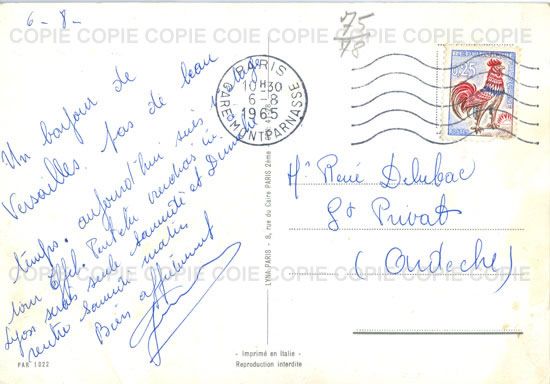 6-8-
75
78
COPIE COPIE COPIE COPIE COPIE COPIE COPIE
PARIS
10H30
6-8
1965
GARE MONTPARNASSE
0,25
Un bonjour de
Versailles, pas de beau
temps. aujourd'hui suis à
tour Eiffel.
Lyon serais seule samedi et Dimanche
rentre samedi matin
Bien affectueusement
Mr René Delubac
St Privat
(Ardèche)
COPIE COPIE COPIE COPIE COPIE COPIE COPIE
COPIE COPIE COPIE COPIE COPIE COPIE COPIE
LYNA-PARIS - 8, rue du Caire PARIS 2ème
- Imprimé en Italie -
Reproduction interdite
PAR 1022